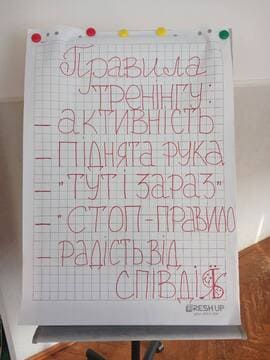 Правила
тренінгу:
- АКТИВНІСТЬ
- ПІДНЯТА РУКА
- "ТУТ І ЗАРАЗ"
- "СТОП-ПРАВИЛО
- РАДІСТЬ ВІД
СПІВДІЇ
FRESH UP